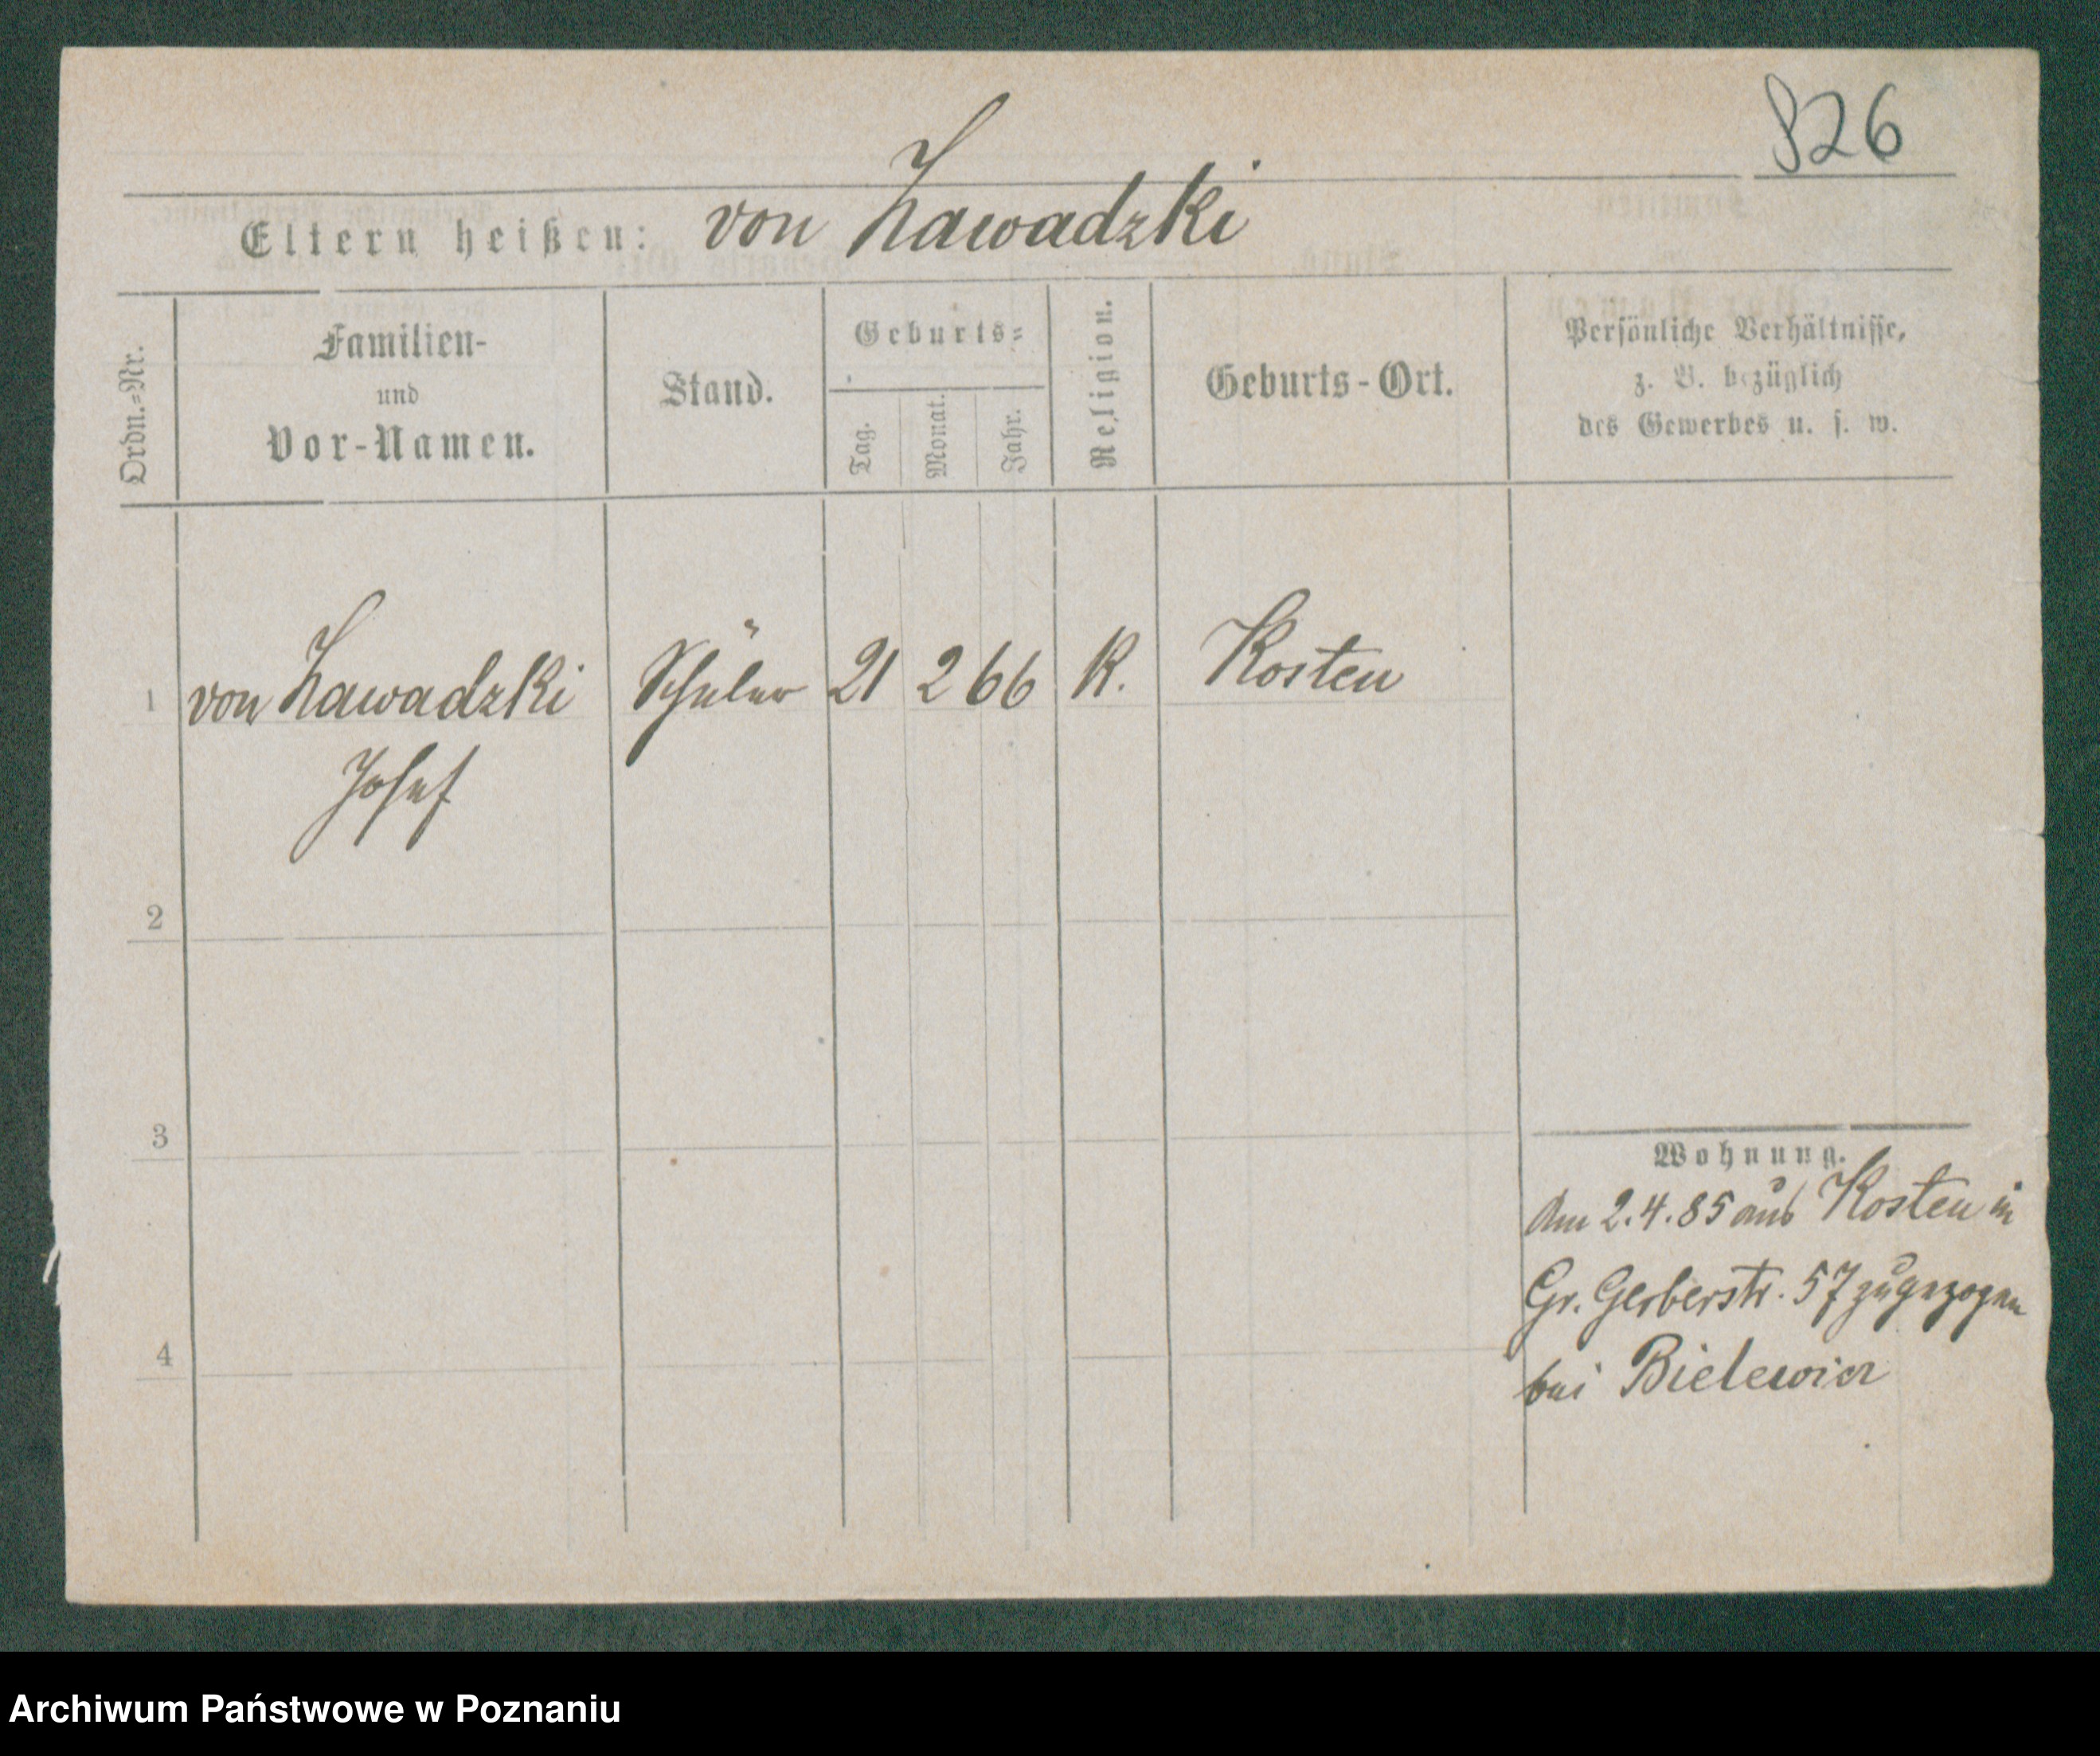 926
Eltern heißen: von Zawadzki
Ordn.=Nr.
Familien-
und
Vor-Namen.
Stand.
Geburts=
Tag.
Monat.
Jahr.
Religion.
Geburts-Ort.
Persönliche Verhältnisse,
z. B. bezüglich
des Gewerbes u. s. w.
1 von Zawadzki Schüler 21 2 66 K. Kosten
Josef
2
3
4
Wohnung.
Am 2.4.85 aus Kosten in
Gr. Gerberstr. 57 zugezogen
bei Bielewicz
Archiwum Państwowe w Poznaniu